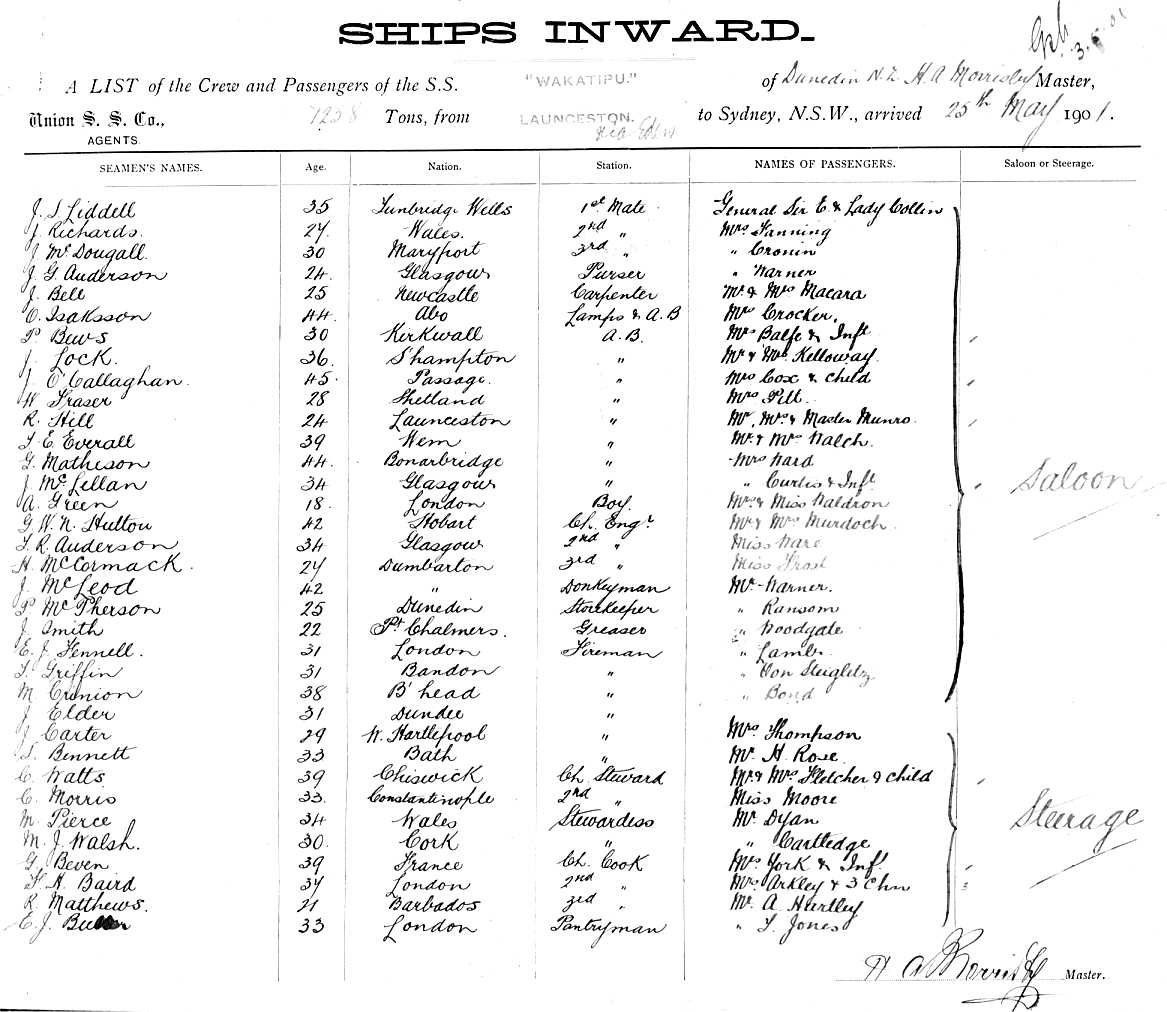 SHIPS INWARD.
A LIST of the Crew and Passengers of the S.S. "WAKATIPU." of Dunedin N.Z. H A Morrisby Master,
Union S. S. Co., 1258 Tons, from LAUNCESTON. via Eden to Sydney, N.S.W., arrived 25th May 1901.
AGENTS.
SEAMEN'S NAMES. Age. Nation. Station. NAMES OF PASSENGERS. Saloon or Steerage.
J. S. Liddell 35 Tunbridge Wells 1st Mate General Sir E & Lady Collin
J. Richards. 27 Wales. 2nd " Mrs Fanning
J. McDougall. 30 Maryport 3rd " " Cronin
J. G. Anderson 24. Glasgow Purser " Warner
J. Bell 25 Newcastle Carpenter Mr & Mrs Macara
O. Isaksson 44. Abo Lamps & A.B Mrs Crocker.
P. Buws 30 Kirkwall A.B. Mrs Balfe & Inft
J. Lock. 36. S'hampton " Mr & Mrs Kelloway.
J. O'Callaghan. 45. Passage. " Mrs Cox & child
W. Fraser 28 Shetland " Mrs Pitt.
R. Hill 24 Launceston " Mr, Mrs & Master Munro.
T. E. Everall 39 Wem " Mr & Mrs Walch.
G. Matheson 44. Bonarbridge " Mrs Ward
J. McLellan 34 Glasgow " " Curtis & Inft
A. Green 18. London Boy. Mrs & Miss Waldron
G. W. N. Hutton 42 Hobart Ch. Engr. Mr & Mrs Murdoch.
T. R. Anderson 34 Glasgow 2nd " Miss Ware
H. McCormack. 27 Dumbarton 3rd " Miss Frost
J. McLeod 42 " Donkeyman Mr Warner.
P. McPherson 25 Dunedin Storekeeper " Ransom
J. Smith 22 Pt Chalmers. Greaser " Woodgate
E. J. Fennell. 31 London Fireman " Lamb.
T. Griffin 31 Bandon " " Von Stieglitz
M. Crinion 38 B'head " " Bond
J. Elder 31 Dundee "
J. Carter 29 W. Hartlepool " Mrs Thompson
S. Bennett 33 Bath " Mr H. Rose
C. Watts 39 Chiswick Ch. Steward Mr & Mrs Fletcher & child
C. Morris 33. Constantinople 2nd " Miss Moore
M. Pierce 34 Wales Stewardess Mr Dyan
M. J. Walsh. 30. Cork " " Cartledge
G. Beven 39 France Ch. Cook Mrs York & Inft
F. H. Baird 37 London 2nd " Mrs Arkley & 3 Chn
R. Matthews. 21 Barbados 3rd " Mr A Hartley
E. J. 33 London Pantryman " T. Jones
Saloon
Steerage
H A Morrisby Master.